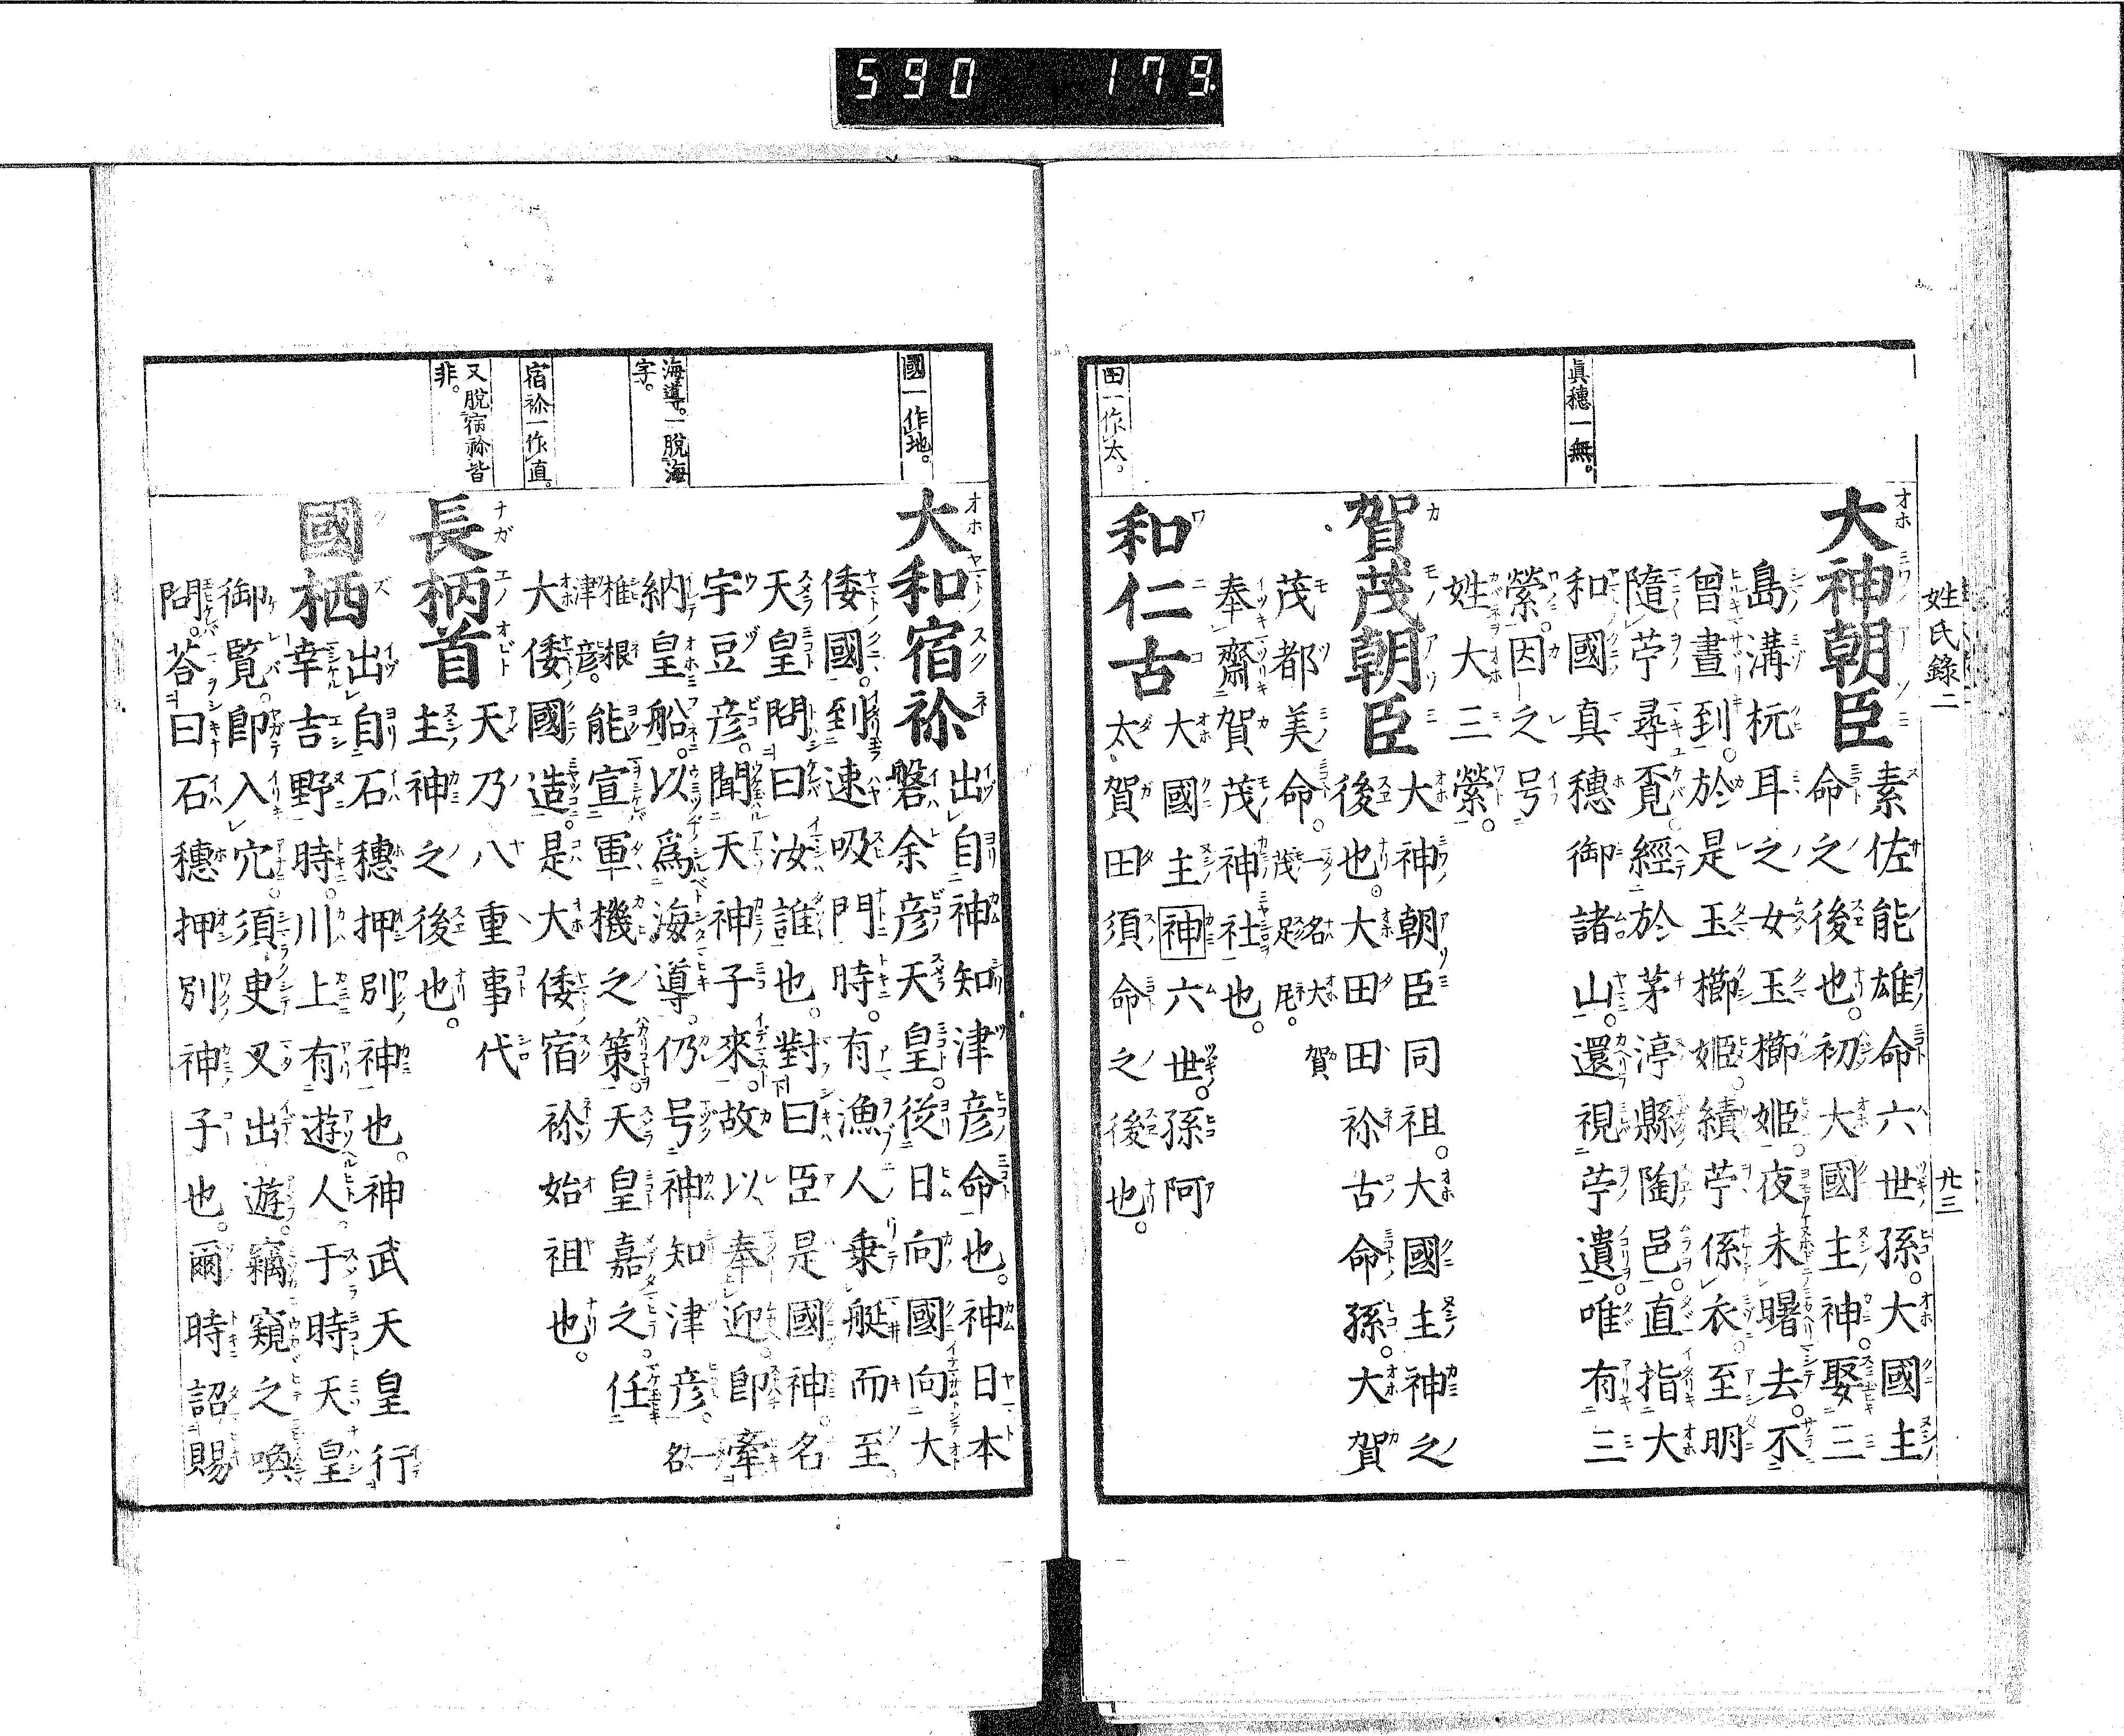 590 179
姓氏錄二
廿三
眞穗一無。
田一作太。
大神朝臣
素佐能雄命六世孫。大國主
命之後也。初大國主神。娶三
島溝杭耳之女玉櫛姬。夜未曙去。不
曾晝到。於是玉櫛姬。績苧係衣。至明
隨苧尋覓。經於茅渟縣陶邑。直指大
和國真穗御諸山。還視苧遺。唯有三
縈。因之号
姓大三縈。
賀茂朝臣
大神朝臣同祖。大國主神之
後也。大田田祢古命孫。大賀
茂都美命。一名大賀茂足尼。
奉齋賀茂神社也。
和仁古
大國主神六世。孫阿
太賀田須命之後也。
國一作地。
海導。一脫海
字。
宿祢一作直。
又脫宿祢皆
非。
大和宿祢
出自神知津彦命也。神日本
磐余彦天皇。從日向國向大
倭國。到速吸門時。有漁人乗艇而至。
天皇問曰汝誰也。對曰臣是國神。名
宇豆彦。聞天神子來。故以奉迎。即牽
納皇船。以爲海導。仍号神知津彦。一名
椎根津彦。
能宣軍機之策。天皇嘉之。任
大倭國造。是大倭宿祢始祖也。
長柄首
天乃八重事代
主神之後也。
國栖
出自石穗押別神也。神武天皇行
幸吉野時。川上有遊人。于時天皇
御覧。即入穴。須臾又出遊。竊窺之喚
問。荅曰石穗押別神子也。爾時詔賜